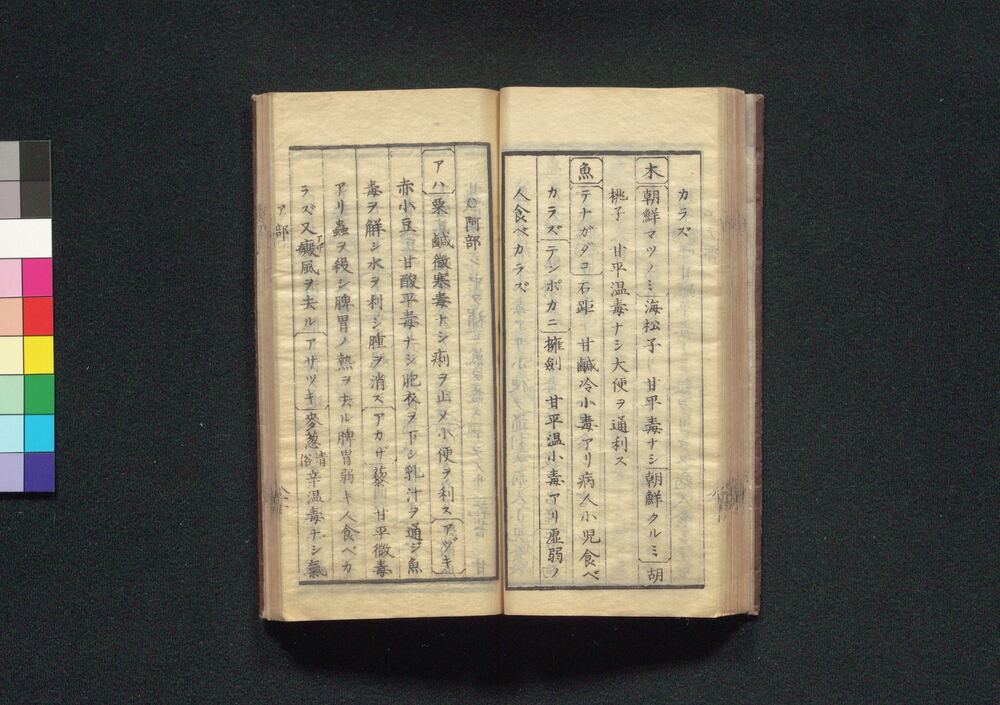 カラズ
木 朝鮮マツノミ 海松子 甘平毒ナシ 朝鮮クルミ 胡
桃子 甘平温毒ナシ大便ヲ通利ス
魚 テナガダコ 石距 甘鹹冷小毒アリ病人小児食ベ
カラズ テンボカニ 擁劍 甘平温小毒アリ虚弱ノ
人食ベカラズ
○阿部
アハ 粟 鹹微寒毒ナシ痢ヲ止メ小便ヲ利ス アヅキ
赤小豆 甘酸平毒ナシ胞衣ヲ下シ乳汁ヲ通ジ魚
毒ヲ解シ水ヲ利シ腫ヲ消ス アカザ 藜 甘平微毒
アリ蟲ヲ殺シ脾胃ノ熱ヲ去ル脾胃弱キ人食ベカ
ラズ又癜風ヲ去ル アサツキ 麥葱 俗 辛温毒ナシ氣
ア部